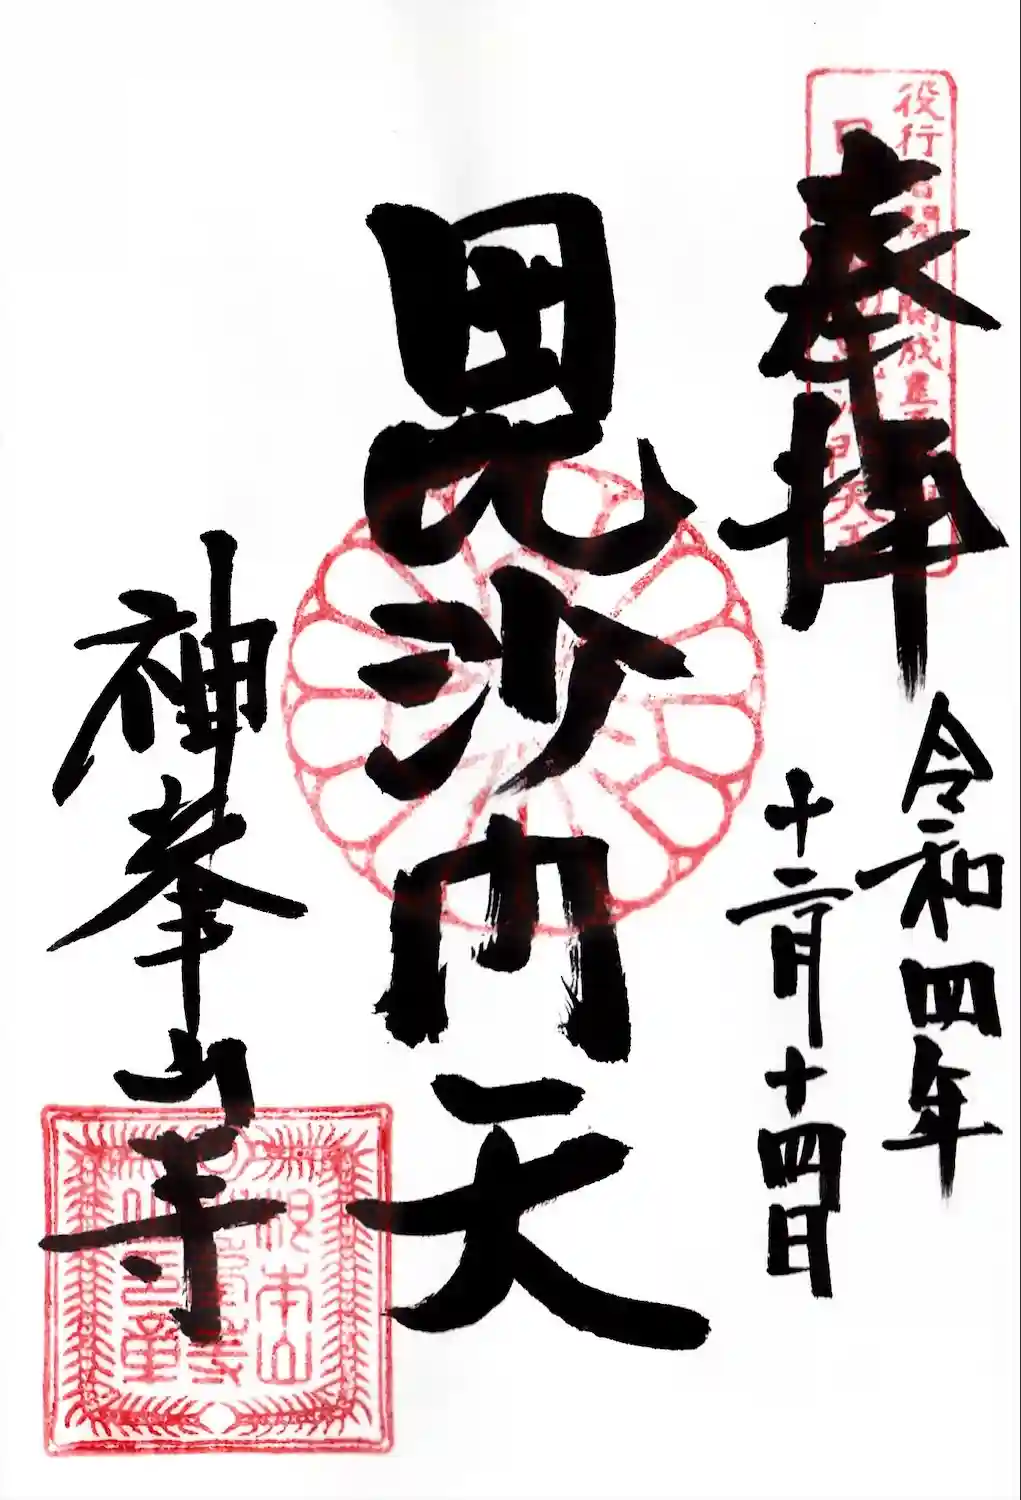 奉拝
令和四年
十二月十四日
毘沙門天
神峯山寺
役行
開成皇
根本山